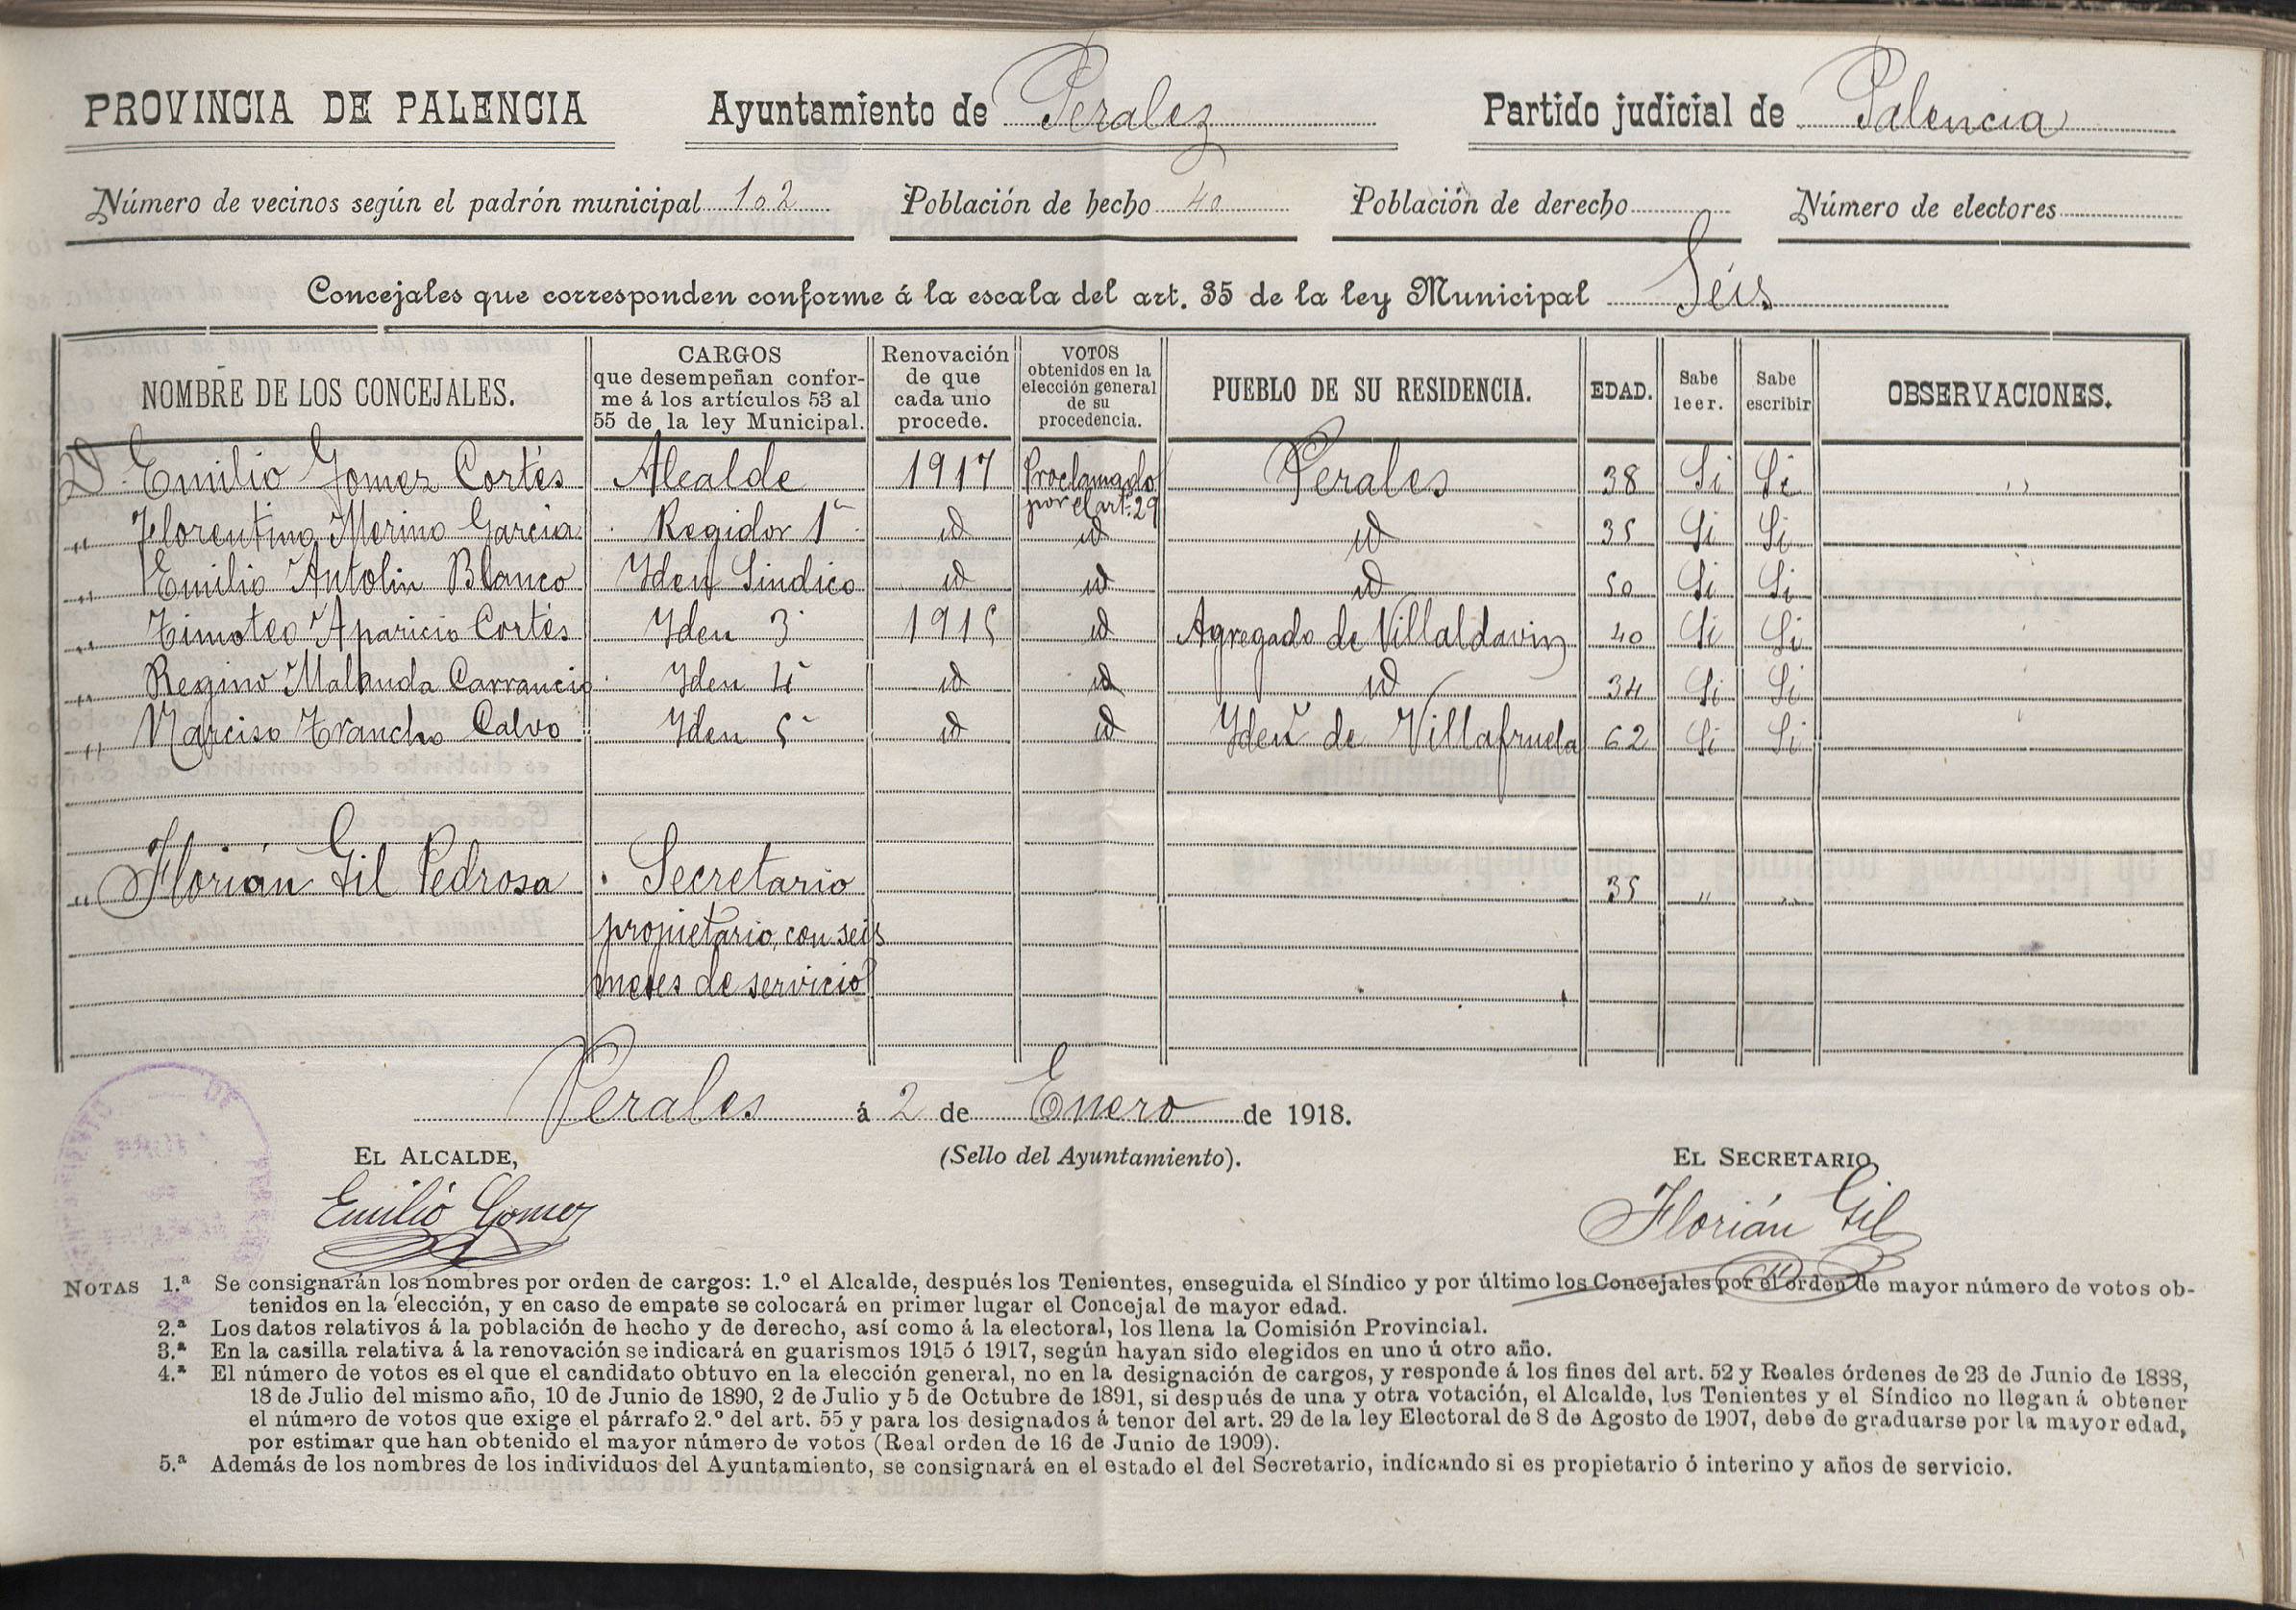 PROVINCIA DE PALENCIA Ayuntamiento de Perales Partido judicial de Palencia
Número de vecinos según el padrón municipal 102 Población de hecho 40 Población de derecho Número de electores
Concejales que corresponden conforme á la escala del art. 35 de la ley Municipal Séis
NOMBRE DE LOS CONCEJALES. CARGOS que desempeñan confor-me á los artículos 53 al 55 de la ley Municipal. Renovación de que cada uno procede. VOTOS obtenidos en la elección general de su procedencia. PUEBLO DE SU RESIDENCIA. EDAD. Sabe leer. Sabe escribir OBSERVACIONES.
D. Emilio Gomez Cortés Alcalde 1917 Proclamado por el art. 29 Perales 38 Si Si ,,
,, Florentino Merino Garcia Regidor 1º id id id 35 Si Si
,, Emilio Antolin Blanco Yden Sindico id id id 50 Si Si
,, Timoteo Aparicio Cortés Yden 3º 1915 id Agregado de Villaldavin 40 Si Si
,, Regino Malanda Carrancio Yden 4º id id id 34 Si Si
,, Narciso Trancho Calvo Yden 5º id id Yden de Villafruela 62 Si Si
,, Florián Gil Pedrosa Secretario 35 ,, ,,
propietario, con seis
meses de servicio
Perales á 2 de Enero de 1918.
EL ALCALDE, (Sello del Ayuntamiento). EL SECRETARIO,
Emilió Gomez Florián Gil
NOTAS 1.ª Se consignarán los nombres por orden de cargos: 1.º el Alcalde, después los Tenientes, enseguida el Síndico y por último los Concejales por el orden de mayor número de votos ob-
tenidos en la elección, y en caso de empate se colocará en primer lugar el Concejal de mayor edad.
2.ª Los datos relativos á la población de hecho y de derecho, así como á la electoral, los llena la Comisión Provincial.
3.ª En la casilla relativa á la renovación se indicará en guarismos 1915 ó 1917, según hayan sido elegidos en uno ú otro año.
4.ª El número de votos es el que el candidato obtuvo en la elección general, no en la designación de cargos, y responde á los fines del art. 52 y Reales órdenes de 23 de Junio de 1888,
18 de Julio del mismo año, 10 de Junio de 1890, 2 de Julio y 5 de Octubre de 1891, si después de una y otra votación, el Alcalde, los Tenientes y el Síndico no llegan á obtener
el número de votos que exige el párrafo 2.º del art. 55 y para los designados á tenor del art. 29 de la ley Electoral de 8 de Agosto de 1907, debe de graduarse por la mayor edad,
por estimar que han obtenido el mayor número de votos (Real orden de 16 de Junio de 1909).
5.ª Además de los nombres de los individuos del Ayuntamiento, se consignará en el estado el del Secretario, indicando si es propietario ó interino y años de servicio.